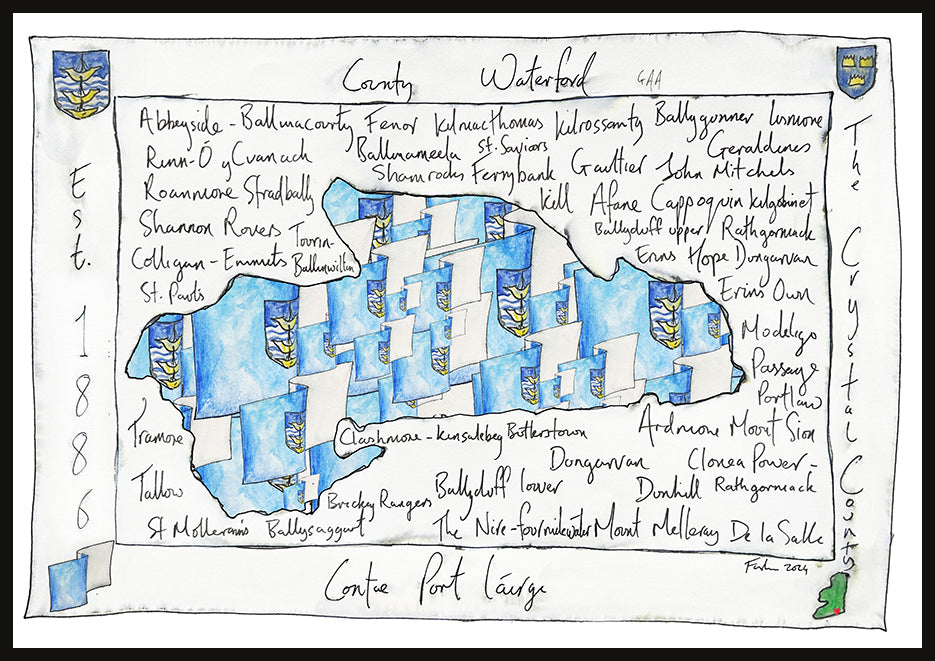 County Waterford GAA
Est. 1886
The Crystal County
Abbeyside - Ballinacourty Fenor Kilmacthomas Kilrossanty Ballygunner Lismore
Rinn-Ó gCuanach Ballinameela St. Saviors Geraldines
Shamrocks Ferrybank Gaultier John Mitchels
Roanmore Stradbally Kill Affane Cappoquin Kilgobinet
Shannon Rovers Tourin- Ballyduff upper Rathgormack
Colligan - Emmets Ballinwillin Erins Hope Dungarvan
St. Pauls Erins Own
Modeligo
Passage
Portlaw
Tramore Clashmore - Kinsalebeg Butlerstown Ardmore Mount Sion
Dungarvan Clonea Power -
Tallow Brickey Rangers Ballyduff lower Dunhill Rathgormack
St Mollerans Ballysaggart The Nire - fourmilewater Mount Melleray De la Salle
2024
Contae Port Láirge